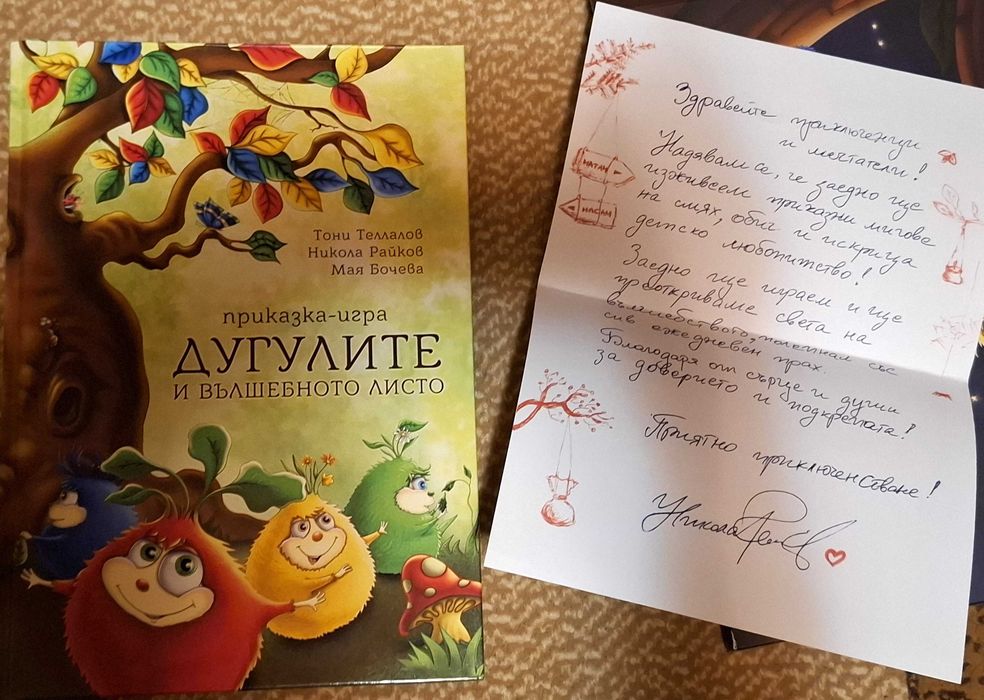 Тони Теллалов
Никола Райков
Мая Бочева
приказка-игра
ДУГУЛИТЕ
И ВЪЛШЕБНОТО ЛИСТО
Здравейте приключенци
и мечтатели!
Надявам се, че заедно ще
изживеем приказни мигове
на смях, обич и искрица
детско любопитство!
Заедно ще играем и ще
преоткриваме света на
вълшебството, полепнал със
сив ежедневен прах.
Благодаря от сърце и души
за доверието и подкрепата!
Приятно приключенстване!
Никола
НАТАМ
НАСАМ